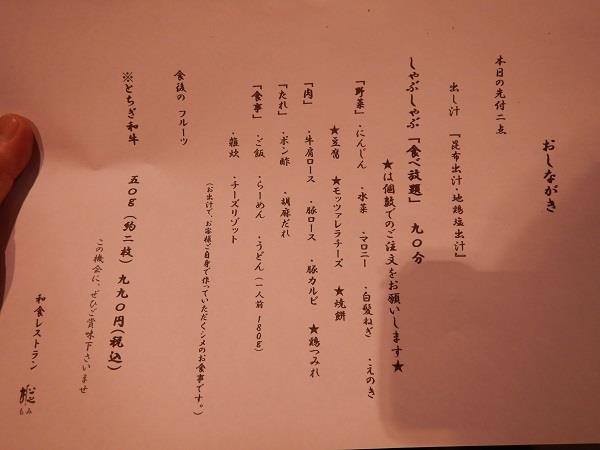 おしながき
本日の先付二点
出し汁 『昆布出汁・地鶏塩出汁』
しゃぶしゃぶ「食べ放題」 九〇分
★は個数でのご注文をお願いします★
「野菜」・にんじん ・水菜 ・マロニー ・白髪ねぎ ・えのき
★豆腐 ★モッツァレラチーズ ★焼餅
「肉」 ・牛肩ロース ・豚ロース ・豚カルビ ★鶏つみれ
「たれ」・ポン酢 ・胡麻だれ
「食事」・ご飯 ・らーめん ・うどん(一人前 180g)
・雑炊 ・チーズリゾット
(お出汁で、お客様ご自身で作っていただくシメのお食事です。)
食後の フルーツ
※とちぎ和牛 五〇g(約二枚) 九九〇円(税込)
この機会に、ぜひご賞味下さいませ
和食レストラン
もみ